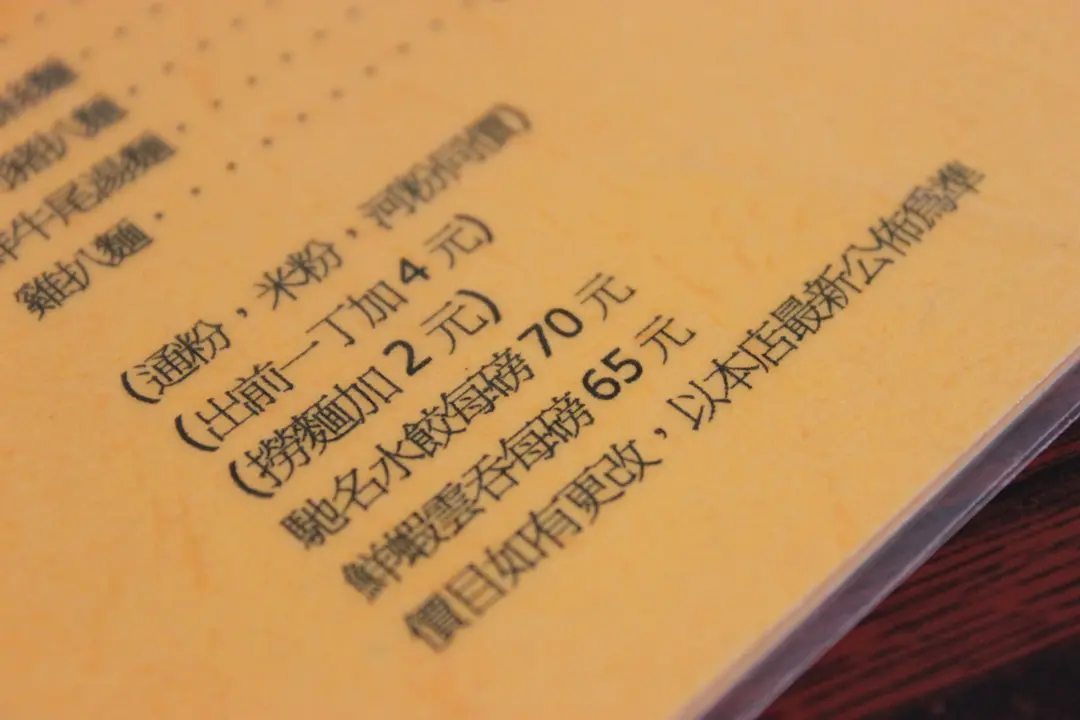 豬扒麵
鮮牛尾湯麵
雞扒麵
(通粉，米粉，河粉同價)
(出前一丁加 4 元)
(撈麵加 2 元)
馳名水餃每磅 70 元
鮮蝦雲吞每磅 65 元
價目如有更改，以本店最新公佈爲準